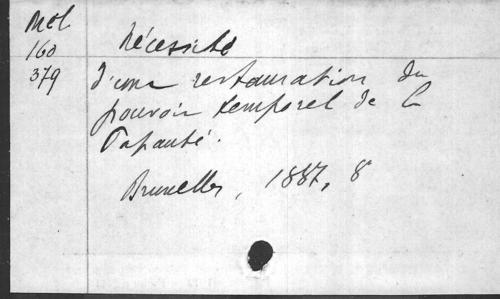 Mél
160
379
Nécessité
d'une restauration du
pouvoir temporel de la
Papauté.
Bruxelles, 1887, 8°